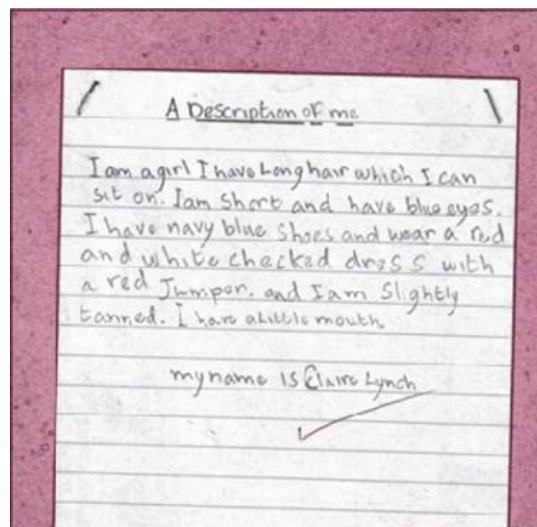 A Description of me
I am a girl I have Long hair which I can
sit on. I am Short and have blue eyes.
I have navy blue Shoes and wear a red
and white checked dress with
a red Jumper. and I am Slightly
tanned. I have a Little mouth.
my name IS Claire Lynch